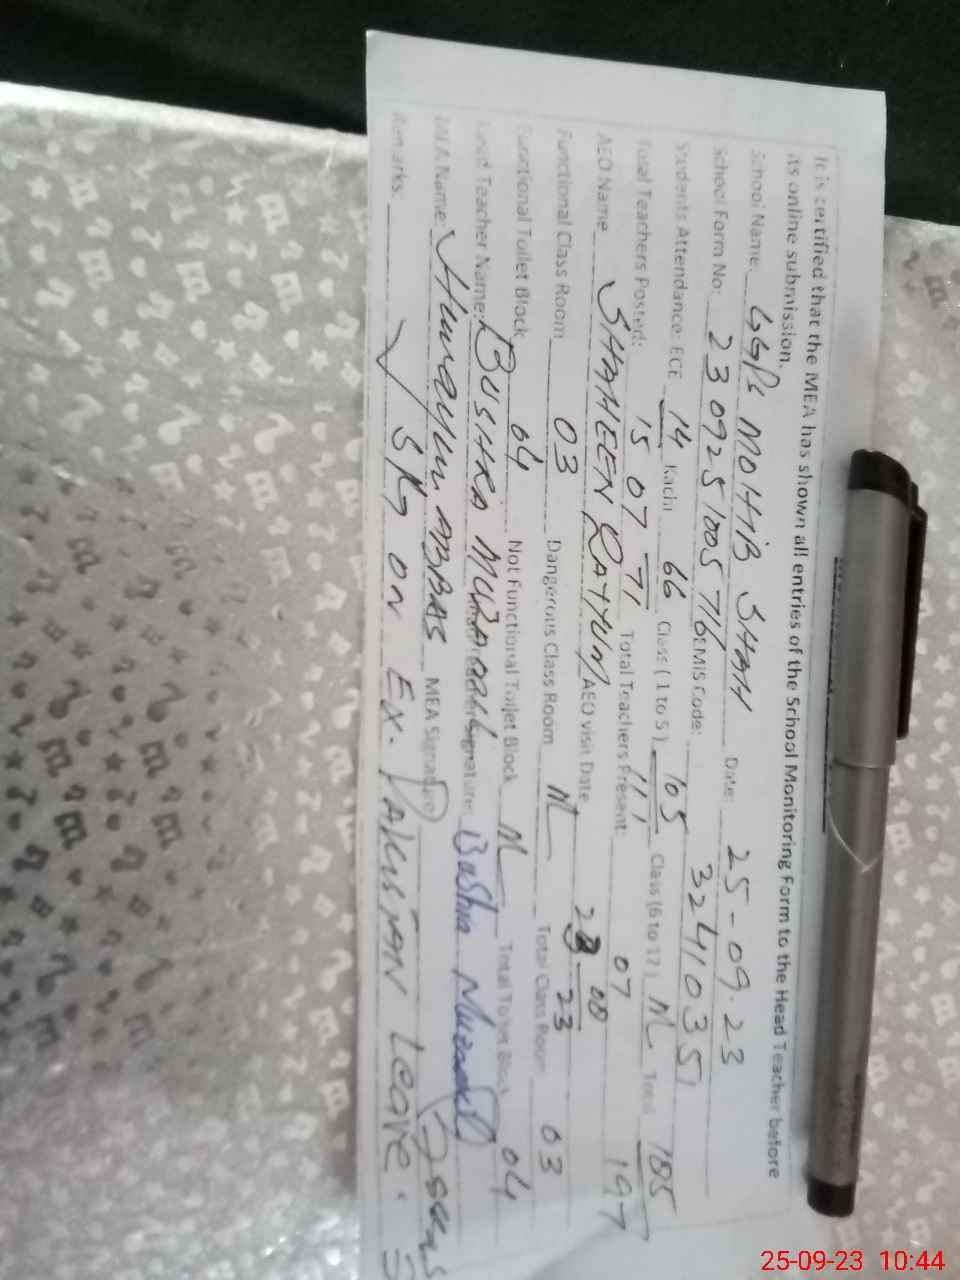 It is certified that the MEA has shown all entries of the School Monitoring Form to the Head Teacher before
its online submission.
School Name: GGPS MOHIB SHAH Date: 25-09-23
School Form No: 23092510057 EMIS Code: 32410351
Students Attendance: ECE 14 Kachi 66 Class (1 to 5) 105 Class (6 to 12) Total 185
15 71 111 197
Total Teachers Posted: 07 Total Teachers Present: 07
AEO Name SHAHEEN KATHUN AEO visit Date 08 23
Functional Class Room 03 Dangerous Class Room Total Class Room 03
Functional Toilet Block 04 Not Functional Toilet Block Total Toilet Block 04
Head Teacher Name: BUSHRA Signature: Bushra
MEA Name: Humayun ABBAS MEA Signature
Remarks: ON EX. PAKISTAN Leave.
25-09-23 10:44